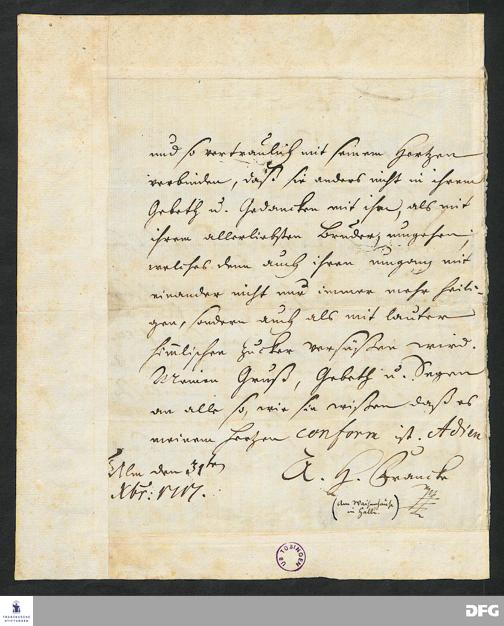 und so vertraulich mit seinem Hertzen
verbinden, daß sie anders nicht in ihrem
Gebeth u. Gedancken mit ihm, als mit
ihrem allerliebsten Bruder, umgehen,
welches denn auch ihren umgang mit
einander nicht nur immer mehr heili-
gen, sondern auch als mit lauter
himlischen Zucker versüßen wird.
Meinen Gruß, Gebeth u. Segen
an alle so, wie sie wißen daß es
meinem Hertzen conform ist. Adieu
Ulm den 31ten
Xbr: 1717.
A. H. Francke
(am Waisenhause
in Halle.)
UB TÜBINGEN
FRANCKESCHE
STIFTUNGEN
DFG